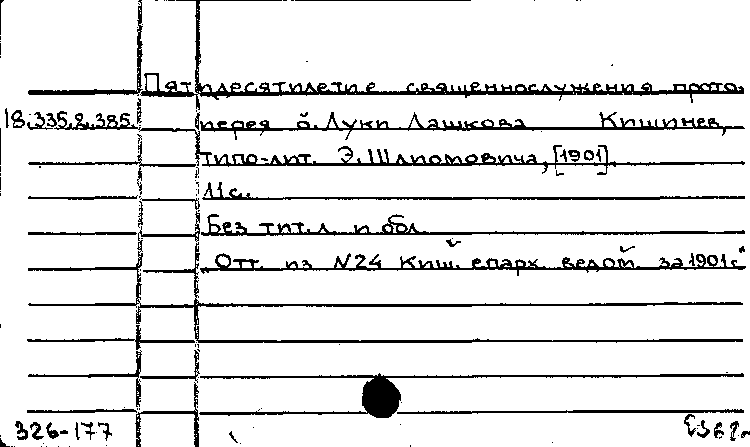 Пятидесятилетие священнослужения прото-
18.335.2.385. иерея о. Луки Лашкова Кишинев,
типо-лит. Э. Шлиомовича, [1901].
11 с.
Без тит. л. и обл.
Отт. из №24 Киш. епарх. ведом. за 1901 г."
326-177